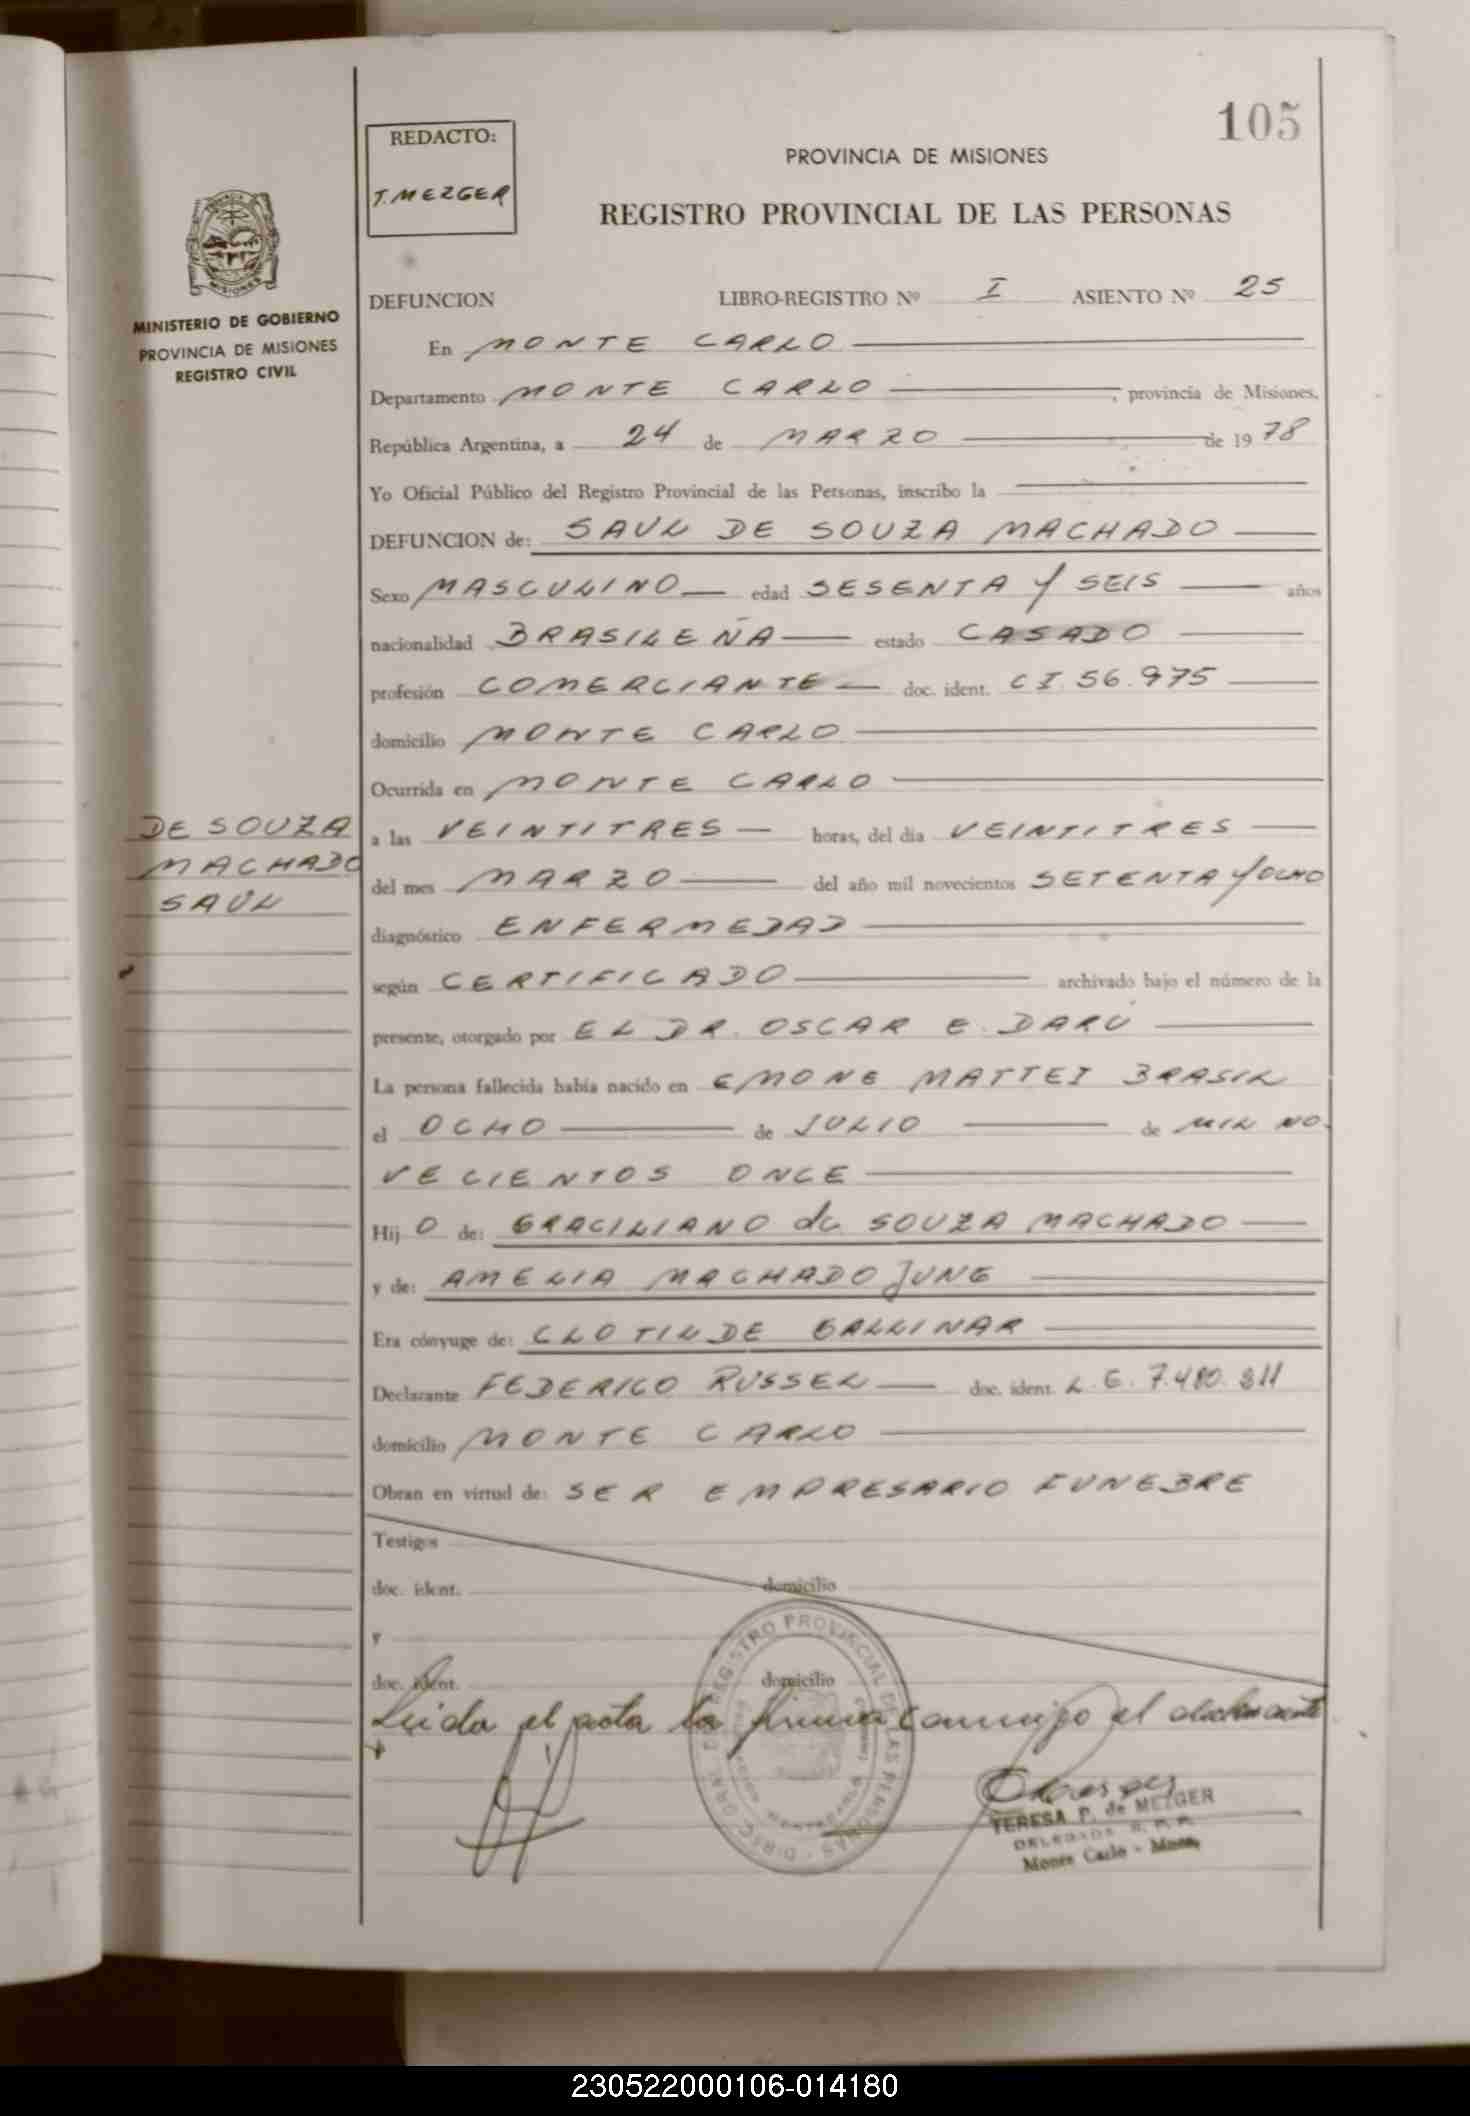 105
REDACTO:
T. MEZGER
PROVINCIA DE MISIONES
REGISTRO PROVINCIAL DE LAS PERSONAS
MISIONES
MINISTERIO DE GOBIERNO
PROVINCIA DE MISIONES
REGISTRO CIVIL
DEFUNCION LIBRO-REGISTRO Nº I ASIENTO Nº 25
En MONTE CARLO
Departamento MONTE CARLO, provincia de Misiones,
República Argentina, a 24 de MARZO de 1978
Yo Oficial Público del Registro Provincial de las Personas, inscribo la
DEFUNCION de: SAUL DE SOUZA MACHADO
Sexo MASCULINO edad SESENTA Y SEIS años
nacionalidad BRASILEÑA estado CASADO
profesión COMERCIANTE doc. ident. C I. 56.975
domicilio MONTE CARLO
Ocurrida en MONTE CARLO
DE SOUZA
MACHADO
SAUL
a las VEINTITRES horas, del día VEINTITRES
del mes MARZO del año mil novecientos SETENTA Y OCHO
diagnóstico ENFERMEDAD
según CERTIFICADO archivado bajo el número de la
presente, otorgado por EL DR. OSCAR E. DARÚ
La persona fallecida había nacido en EMONE MATTEI BRASIL
el OCHO de JULIO de MIL NO-
VECIENTOS ONCE
Hij O de: GRACILIANO de SOUZA MACHADO
y de: AMELIA MACHADO JUNG
Era cónyuge de: CLOTILDE GALLINAR
Declarante FEDERICO RUSSEL doc. ident. L. E. 7.480.311
domicilio MONTE CARLO
Obran en virtud de: SER EMPRESARIO FUNEBRE
Testigos
doc. ident. domicilio
y
doc. ident. domicilio
Leida el acta la firma conmigo el declarante
DIREC. GRAL. DE REGISTRO PROVINCIAL DE LAS PERSONAS
TERESA P. de MEZGER
DELEGADA R. P. P.
Monte Carlo - Mnes.
230522000106-014180